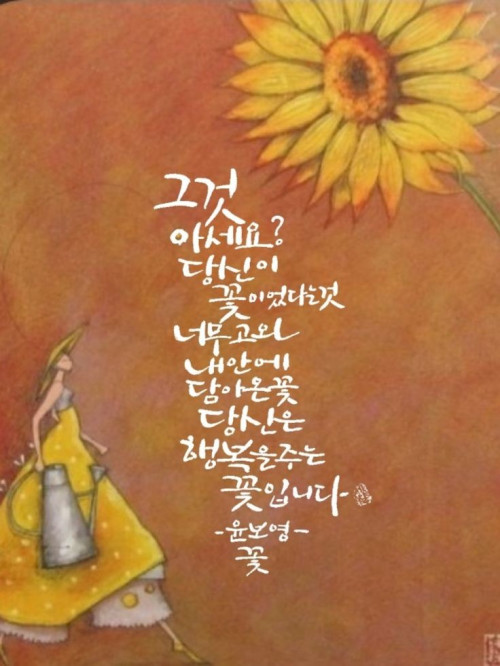 그것
아세요?
당신이
꽃이었다는것
너무고와
내안에
담아온꽃
당신은
행복을주는
꽃입니다
-윤보영-
꽃